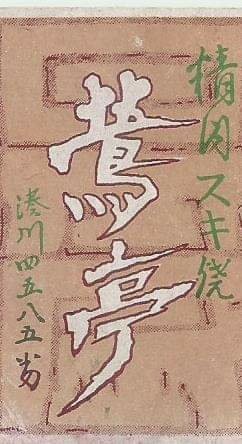 精肉スキ焼
蔦亭
湊川四五八五番